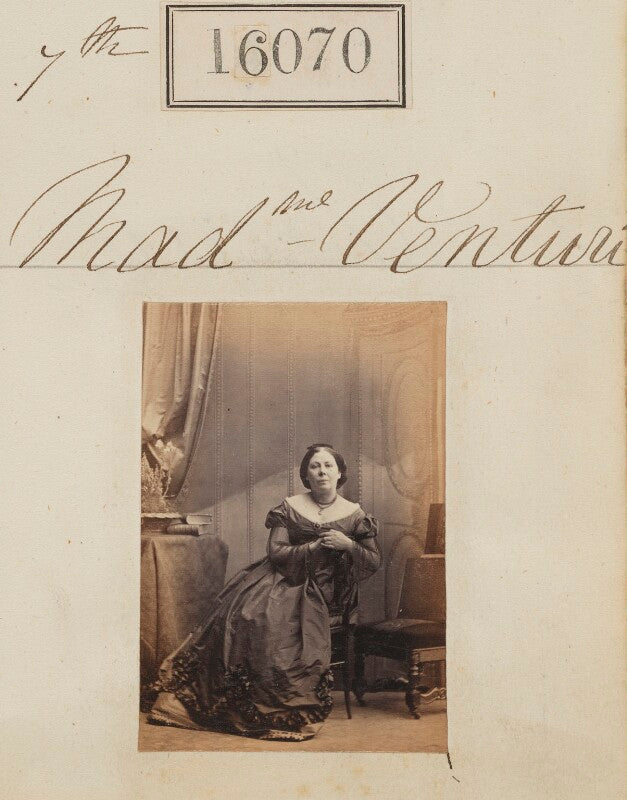 7th 16070
Madme Venturi